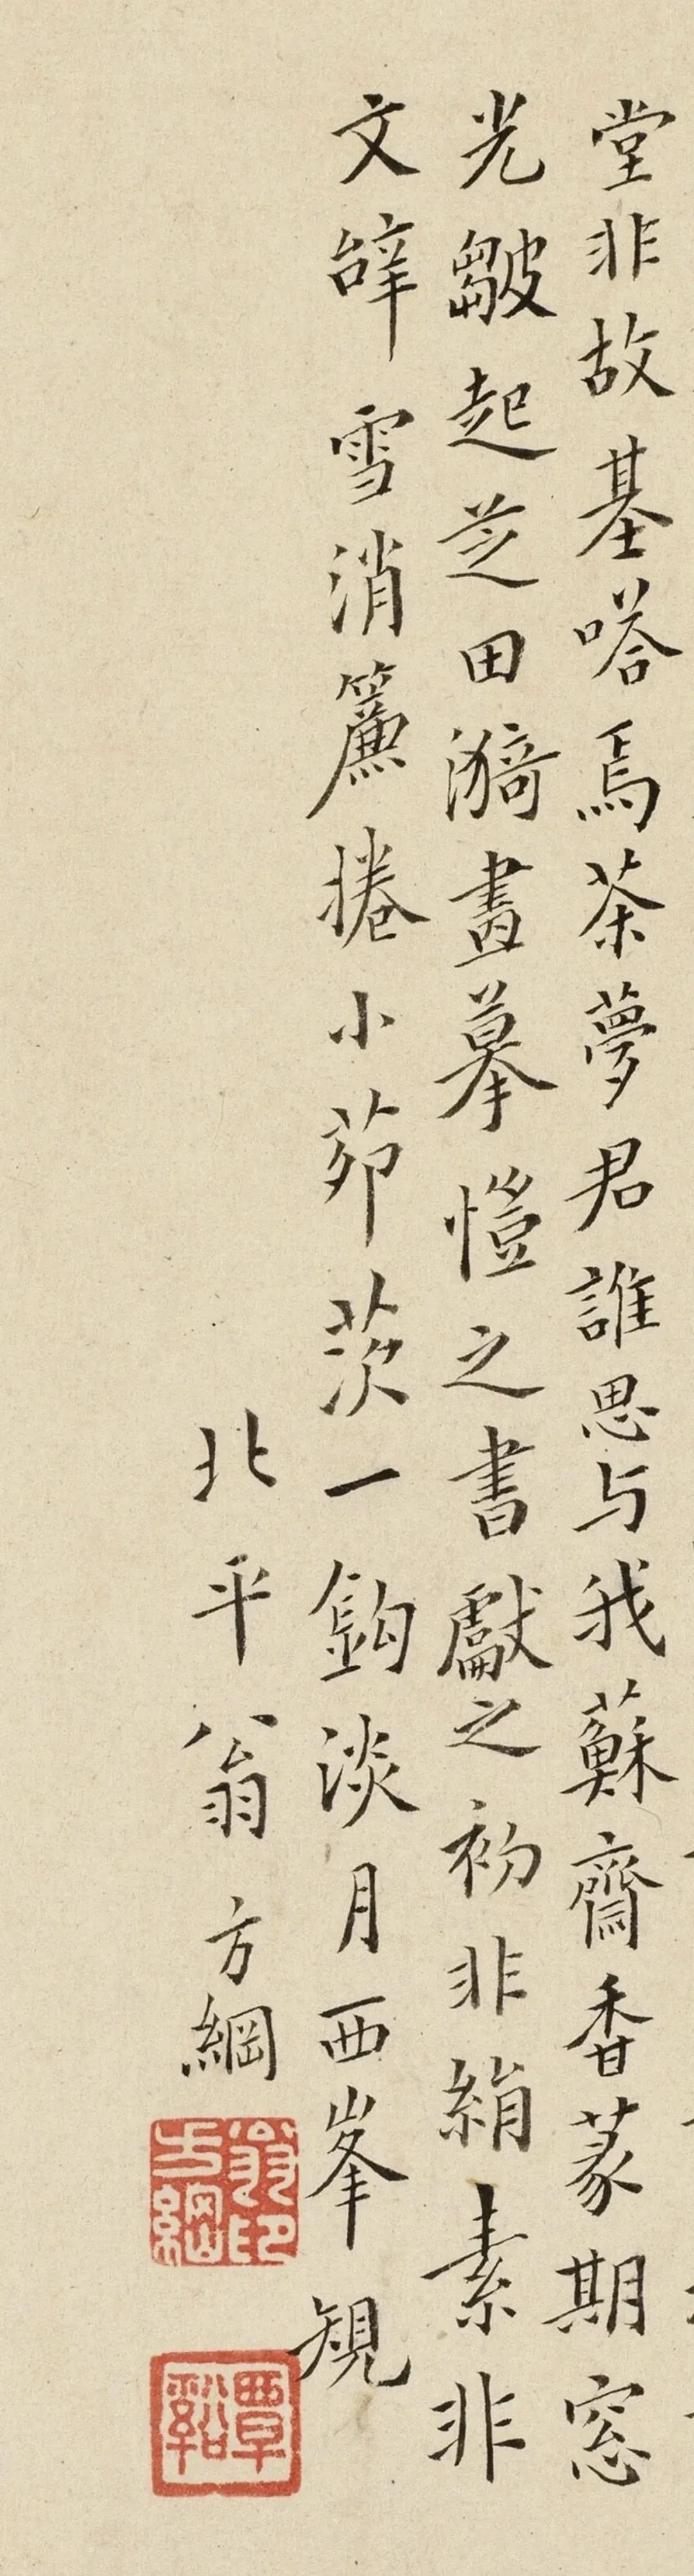 堂非故基嗒焉茶夢君誰思与我蘇齋香篆期窓
光皺起芝田漪畫摹愷之書獻之初非絹素非
文辞雪消簾捲小茆茨一鉤淡月西峯規
北平翁方綱
翁方綱印
覃谿